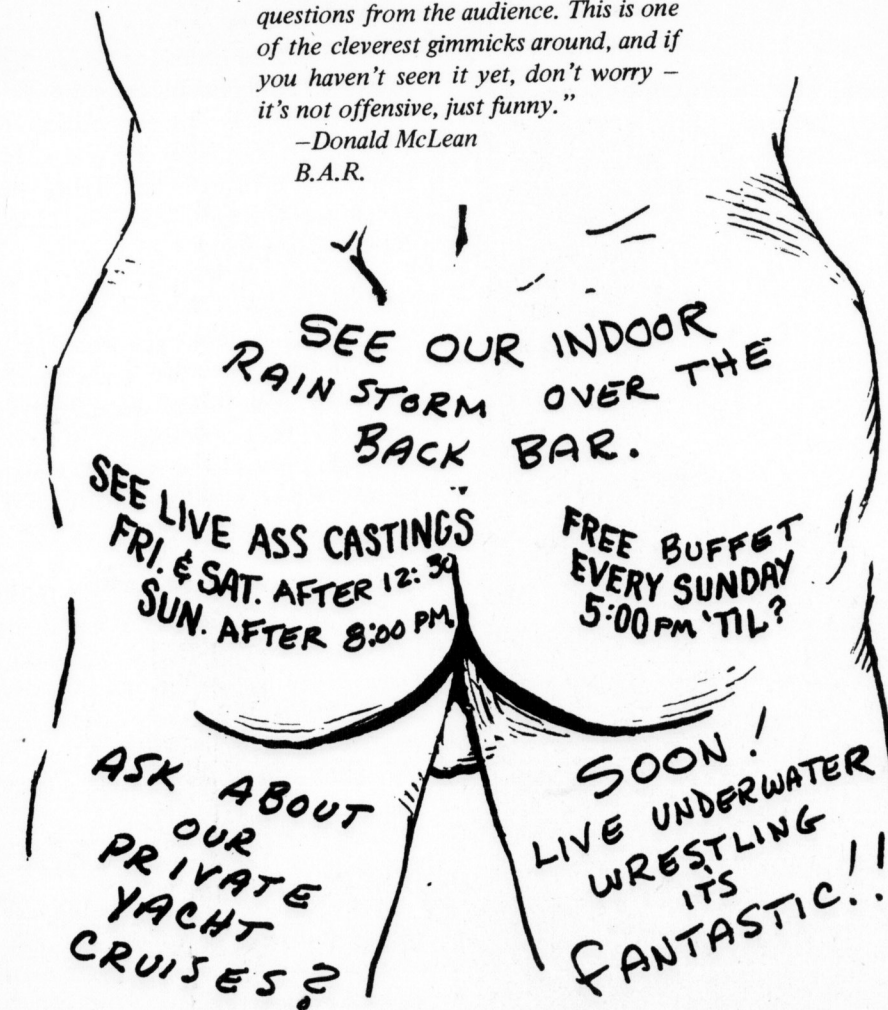 questions from the audience. This is one
of the cleverest gimmicks around, and if
you haven't seen it yet, don't worry –
it's not offensive, just funny."
–Donald McLean
B.A.R.
SEE OUR INDOOR
RAIN STORM OVER THE
BACK BAR.
SEE LIVE ASS CASTINGS
FRI. & SAT. AFTER 12:30
SUN. AFTER 8:00 PM
FREE BUFFET
EVERY SUNDAY
5:00 PM 'TIL?
ASK ABOUT
OUR
PRIVATE
YACHT
CRUISES?
SOON!
LIVE UNDERWATER
WRESTLING
ITS
FANTASTIC!!